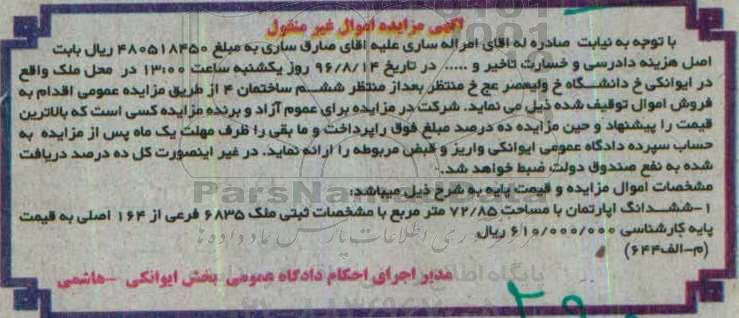 آگهی مزایده اموال غیر منقول
با توجه به نیابت صادره له آقای امراله ساری علیه آقای صارق ساری به مبلغ ۴۸۰۵۱۸۴۵۰ ریال بابت
اصل هزینه دادرسی و خسارت تاخیر و ..... در تاریخ ۹۶/۸/۱۴ روز یکشنبه ساعت ۱۳:۰۰ در محل ملک واقع
در ایوانکی خ دانشگاه خ ولیعصر عج خ منتظر بعداز منتظر ششم ساختمان ۴ از طریق مزایده عمومی اقدام به
فروش اموال توقیف شده ذیل می نماید. شرکت در مزایده برای عموم آزاد و برنده مزایده کسی است که بالاترین
قیمت را پیشنهاد و حین مزایده ده درصد مبلغ فوق راپرداخت و ما بقی را ظرف مهلت یک ماه پس از مزایده به
حساب سپرده دادگاه عمومی ایوانکی واریز و قبض مربوطه را ارائه نماید. در غیر اینصورت کل ده درصد دریافت
شده به نفع صندوق دولت ضبط خواهد شد.
مشخصات اموال مزایده و قیمت پایه به شرح ذیل میباشد:
۱-ششدانگ اپارتمان با مساحت ۷۲/۸۵ متر مربع با مشخصات ثبتی ملک ۶۸۳۵ فرعی از ۱۶۴ اصلی به قیمت
پایه کارشناسی ۶۱۰/۰۰۰/۰۰۰ ریال
(م-الف۶۴۴)
مدیر اجرای احکام دادگاه عمومی بخش ایوانکی -هاشمی